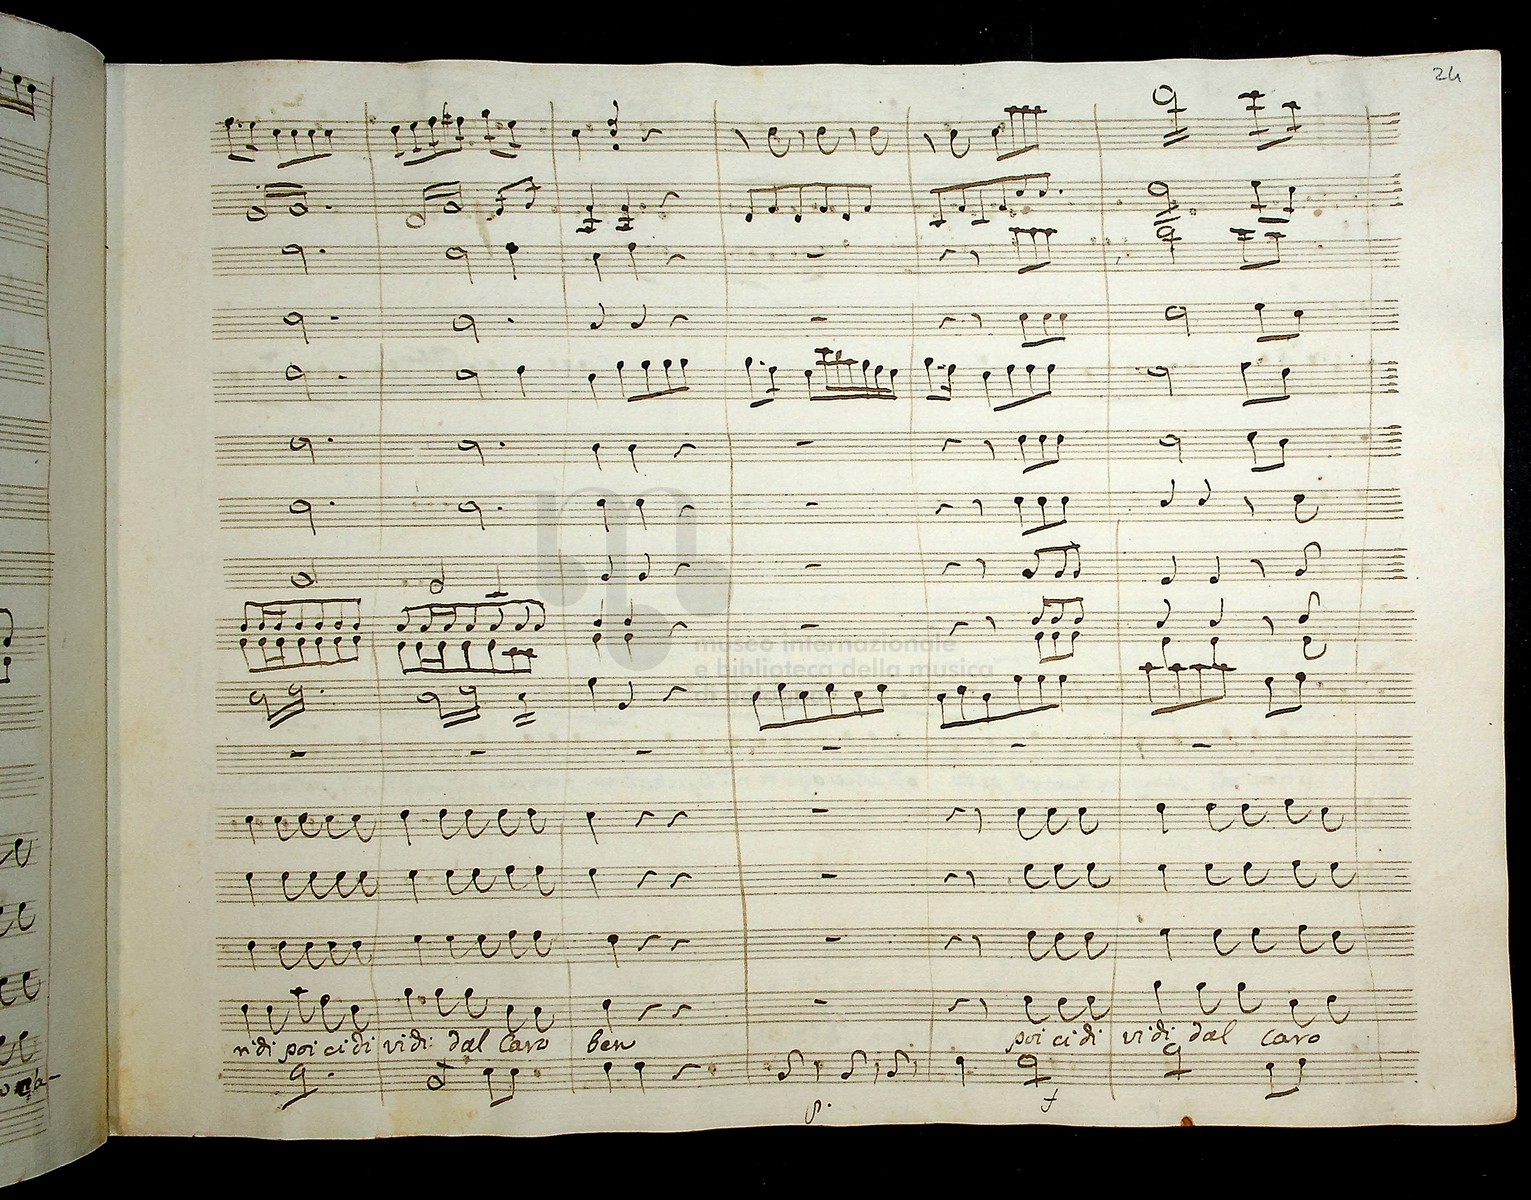 24
museo internazionale
e biblioteca della musica
nidi poi ci di vidi: dal caro ben poi ci di vidi dal caro
p.
f